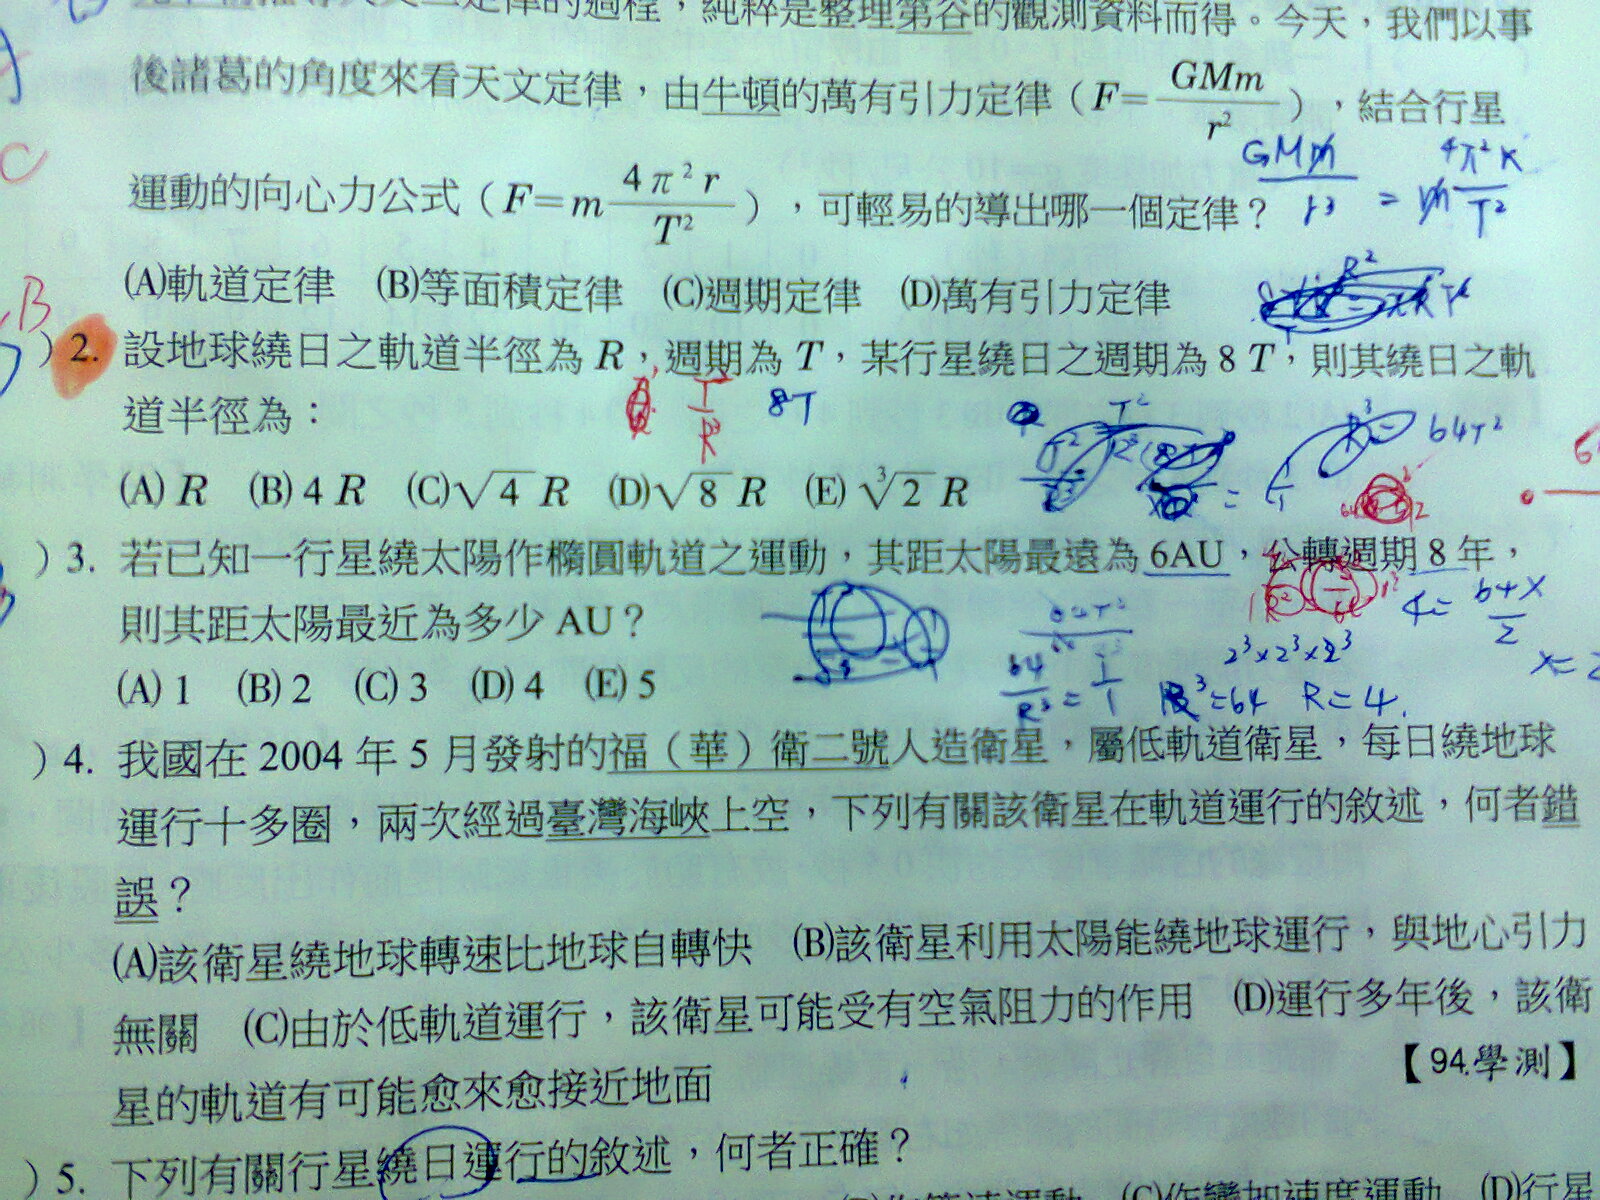 的過程，純粹是整理第谷的觀測資料而得。今天，我們以事
後諸葛的角度來看天文定律，由牛頓的萬有引力定律（F=GMm/r²），結合行星
GMm/r² = m 4π²R/T²
運動的向心力公式（F=m 4π²r/T²），可輕易的導出哪一個定律？
(A)軌道定律 (B)等面積定律 (C)週期定律 (D)萬有引力定律
B
)2. 設地球繞日之軌道半徑為 R，週期為 T，某行星繞日之週期為 8 T，則其繞日之軌
道半徑為：
8T
64T²
(A) R (B) 4 R (C)√4 R (D)√8 R (E) ³√2 R
)3. 若已知一行星繞太陽作橢圓軌道之運動，其距太陽最遠為 6AU，公轉週期 8 年，
則其距太陽最近為多少 AU？
2³×2³×2³
64/R³ = 1/1 R³=64 R=4.
(A) 1 (B) 2 (C) 3 (D) 4 (E) 5
)4. 我國在 2004 年 5 月發射的福（華）衛二號人造衛星，屬低軌道衛星，每日繞地球
運行十多圈，兩次經過臺灣海峽上空，下列有關該衛星在軌道運行的敘述，何者錯
誤？
(A)該衛星繞地球轉速比地球自轉快 (B)該衛星利用太陽能繞地球運行，與地心引力
無關 (C)由於低軌道運行，該衛星可能受有空氣阻力的作用 (D)運行多年後，該衛
星的軌道有可能愈來愈接近地面
【94.學測】
)5. 下列有關行星繞日運行的敘述，何者正確？
(C)作變加速度運動 (D)行星